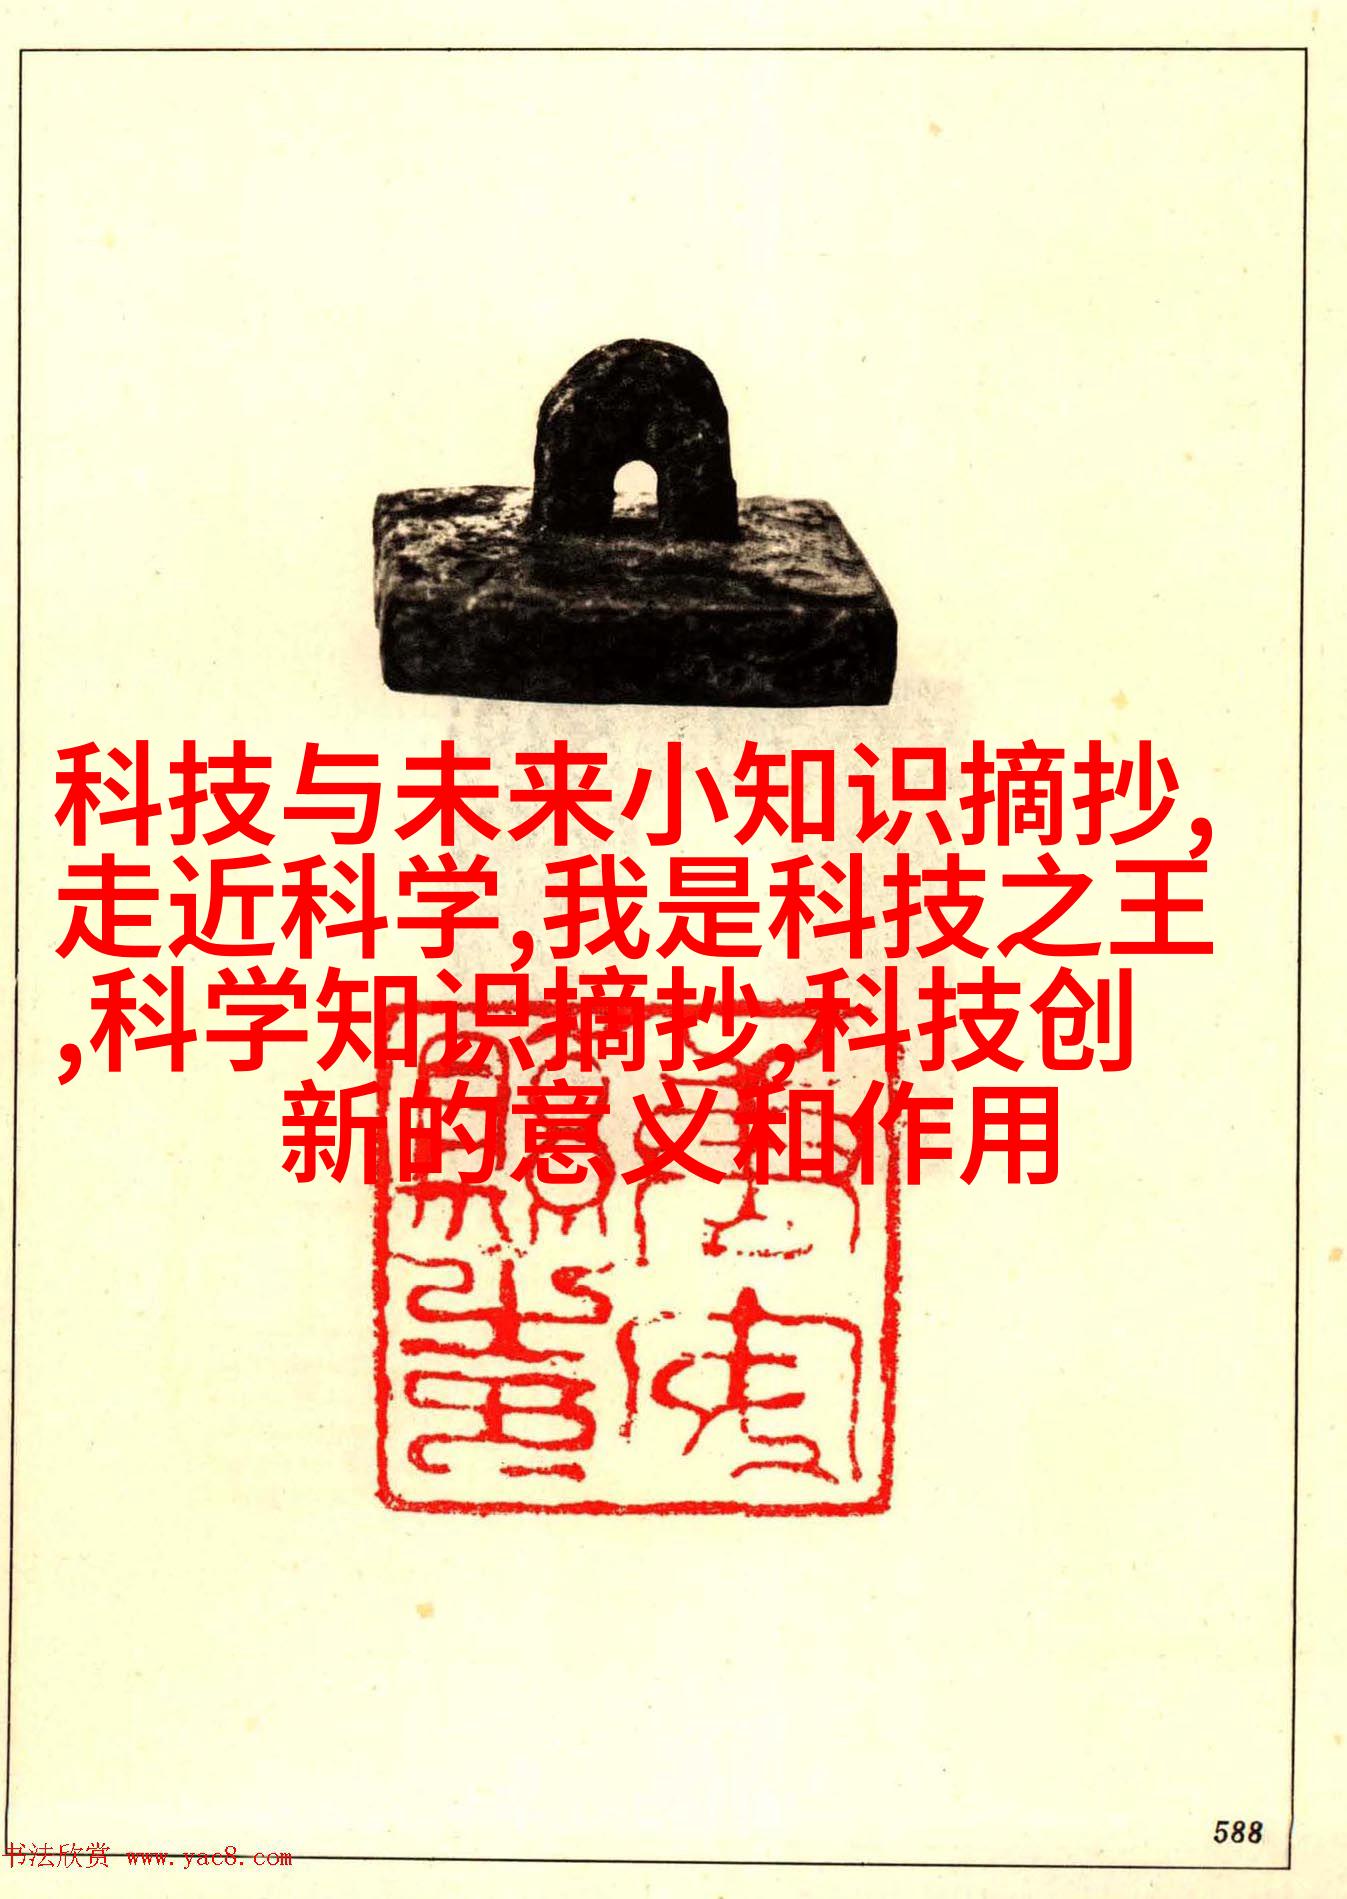 科技与未来小知识摘抄,
走近科学,我是科技之王
,科学知识摘抄,科技创
新的意义和作用
588
书法欣赏 www.yac8.com